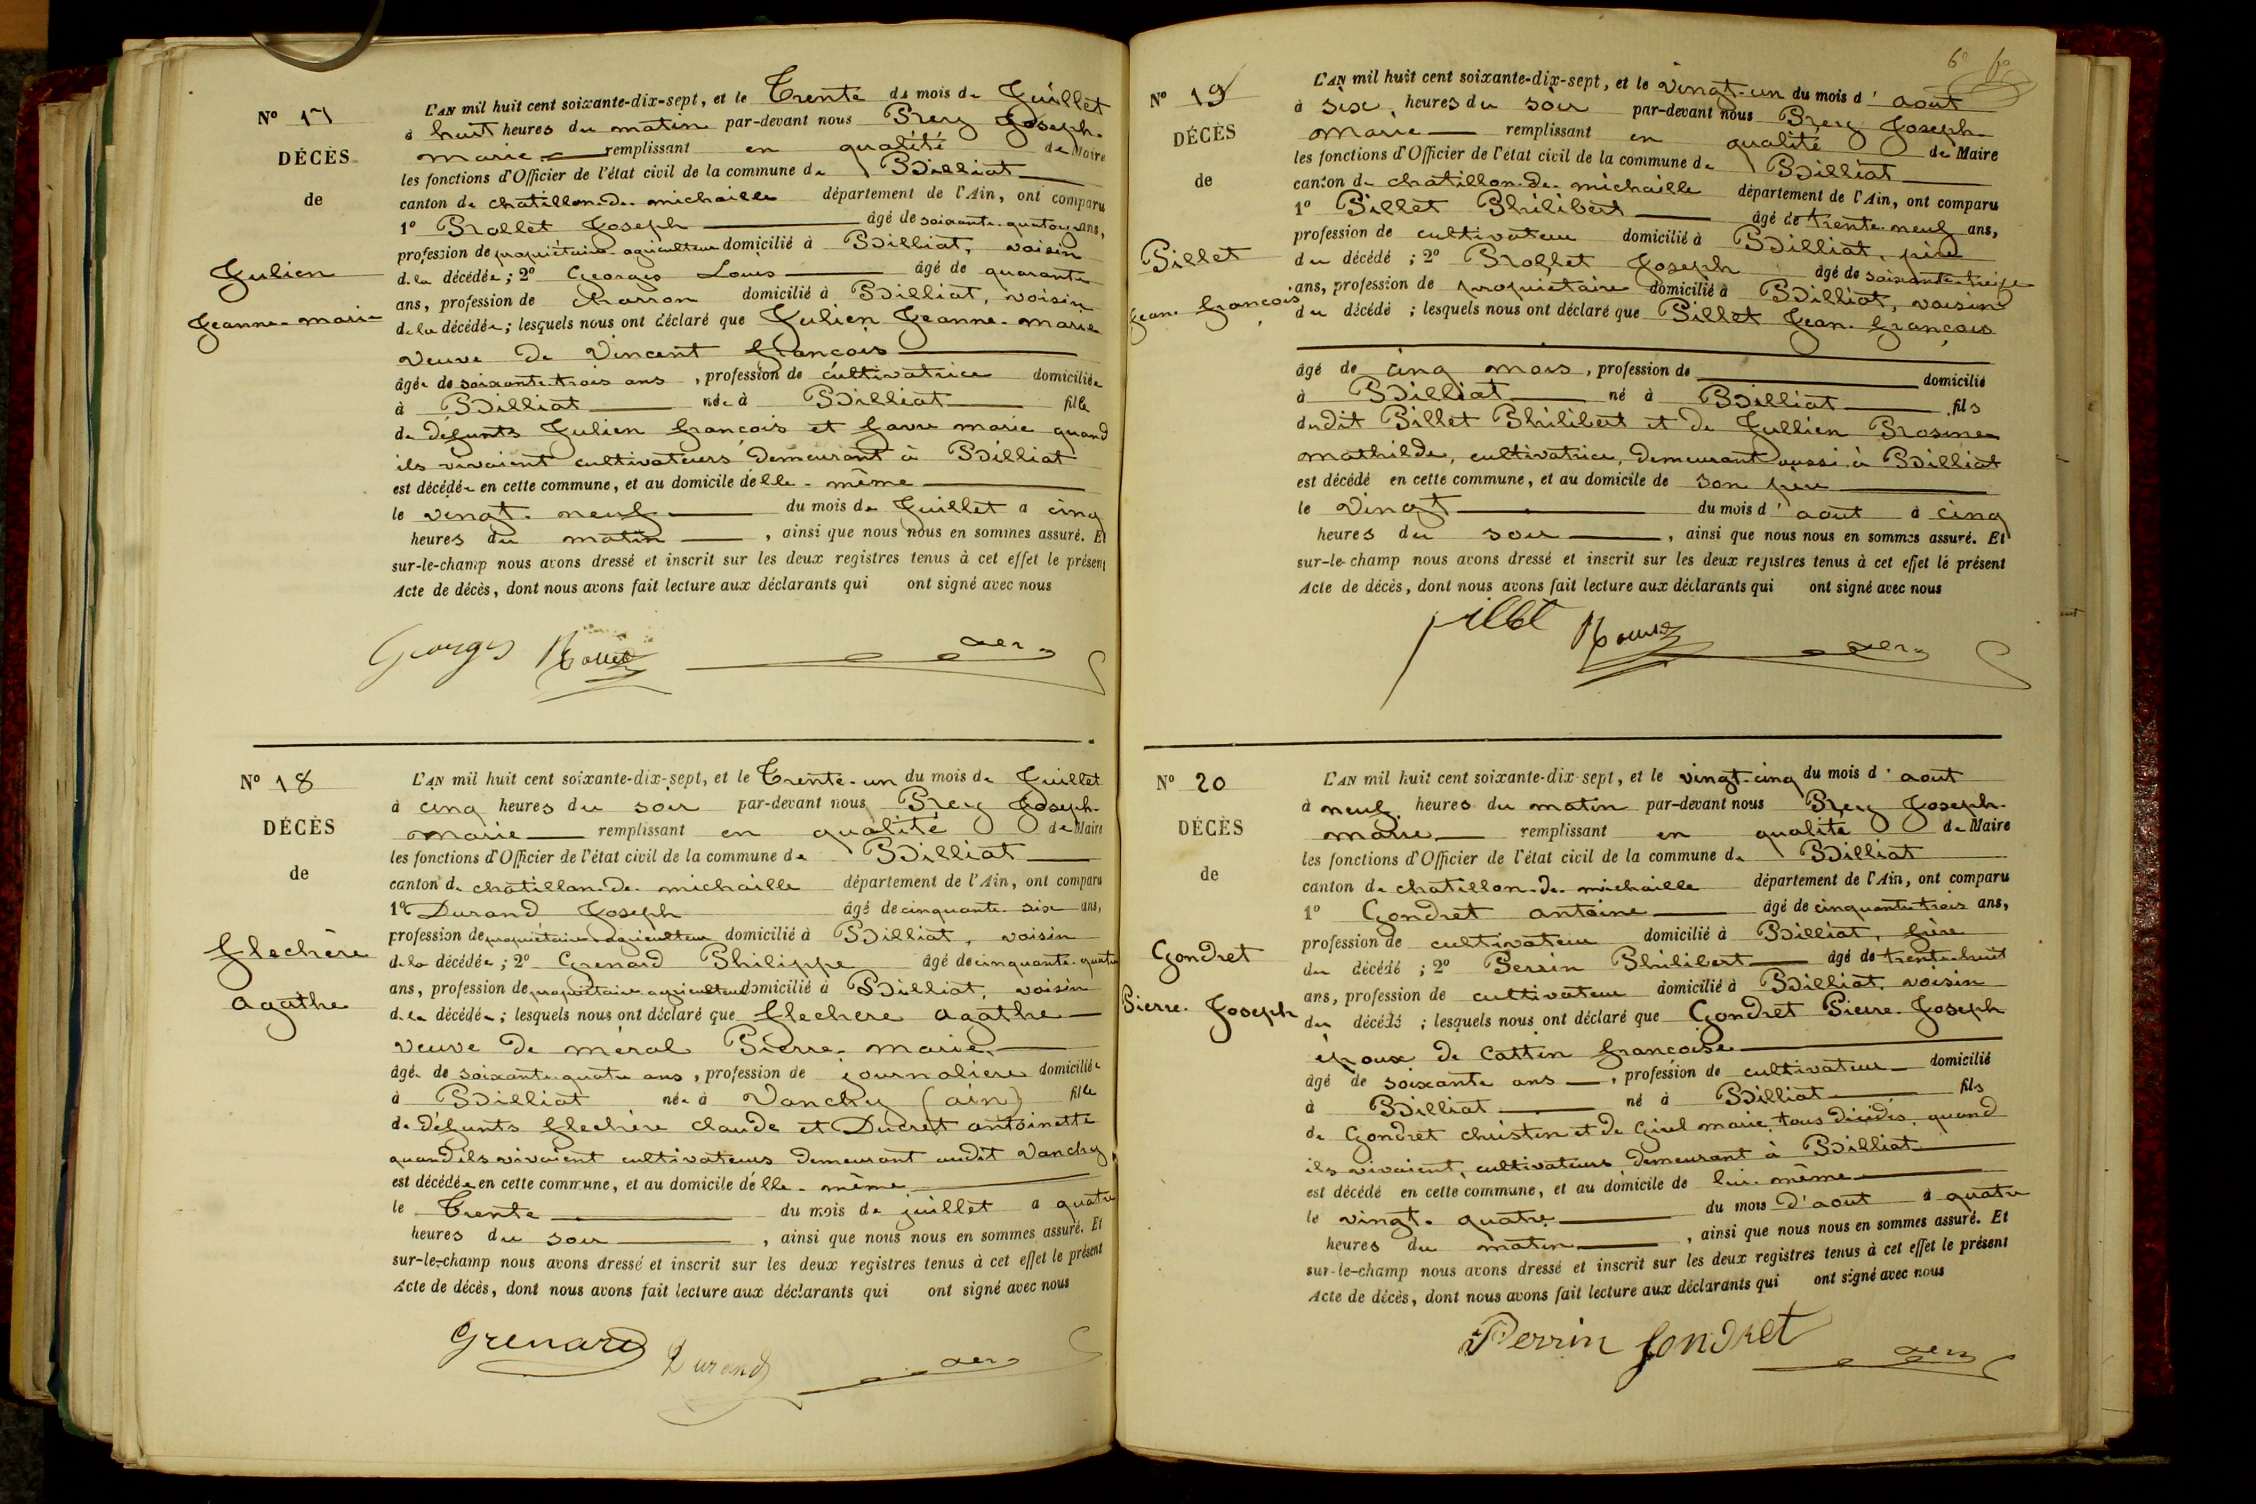 N° 17
DÉCÈS
de
Julien
Jeanne-marie
L'AN mil huit cent soixante-dix-sept, et le Trente du mois de Juillet
à huit heures du matin par-devant nous Prery Joseph-
marie remplissant en qualité de Maire
les fonctions d'Officier de l'état civil de la commune de Billiat
canton de chatillon-de-michaille département de l'Ain, ont comparu
1° Rollet Joseph âgé de soixante-quatorze ans,
profession de propriétaire-agriculteur domicilié à Billiat, voisin
de la décédée ; 2° Georges Louis âgé de quarante
ans, profession de charron domicilié à Billiat, voisin
de la décédée ; lesquels nous ont déclaré que Julien Jeanne-marie
veuve de Vincent françois
âgée de soixante-trois ans, profession de cultivatrice domiciliée
à Billiat née à Billiat fille
de défunts Julien françois et favre marie quand
ils vivaient cultivateurs demeurant à Billiat
est décédée en cette commune, et au domicile d'elle-même
le vingt-neuf du mois de Juillet à cinq
heures du matin, ainsi que nous nous en sommes assuré. Et
sur-le-champ nous avons dressé et inscrit sur les deux registres tenus à cet effet le présent
Acte de décès, dont nous avons fait lecture aux déclarants qui ont signé avec nous
Georges Rollet
N° 18
DÉCÈS
de
flechère
agathe
L'AN mil huit cent soixante-dix-sept, et le Trente-un du mois de Juillet
à cinq heures du soir par-devant nous Prery Joseph-
marie remplissant en qualité de Maire
les fonctions d'Officier de l'état civil de la commune de Billiat
canton de chatillon-de-michaille département de l'Ain, ont comparu
1° Durand Joseph âgé de cinquante-six ans,
profession de propriétaire-agriculteur domicilié à Billiat, voisin
de la décédée ; 2° Grenard Philippe âgé de cinquante-quatre
ans, profession de propriétaire agriculteur domicilié à Billiat, voisin
de la décédée ; lesquels nous ont déclaré que flechere agathe
veuve de méral Pierre-marie
âgée de soixante-quatre ans, profession de journalière domiciliée
à Billiat née à Vanchy (ain) fille
de défunts flechère claude et Ducret antoinette
quand ils vivaient cultivateurs demeurant audit Vanchy,
est décédée en cette commune, et au domicile d'elle-même
le Trente du mois de juillet à quatre
heures du soir, ainsi que nous nous en sommes assuré. Et
sur-le-champ nous avons dressé et inscrit sur les deux registres tenus à cet effet le présent
Acte de décès, dont nous avons fait lecture aux déclarants qui ont signé avec nous
Grenard Durand
N° 19
DÉCÈS
de
Pillet
Jean-françois
L'AN mil huit cent soixante-dix-sept, et le vingt-un du mois d'aout
à six heures du soir par-devant nous Prery Joseph-
marie remplissant en qualité de Maire
les fonctions d'Officier de l'état civil de la commune de Billiat
canton de chatillon-de-michaille département de l'Ain, ont comparu
1° Pillet Philibert âgé de trente-neuf ans,
profession de cultivateur domicilié à Billiat, père
du décédé ; 2° Rollet Joseph âgé de soixante-treize
ans, profession de propriétaire domicilié à Billiat, voisin
du décédé ; lesquels nous ont déclaré que Pillet Jean-françois
âgé de cinq mois, profession de domicilié
à Billiat né à Billiat fils
dudit Pillet Philibert et de Jullien Rosine
mathilde, cultivatrice, demeurant aussi à Billiat
est décédé en cette commune, et au domicile de son père
le vingt du mois d'aout à cinq
heures du soir, ainsi que nous nous en sommes assuré. Et
sur-le-champ nous avons dressé et inscrit sur les deux registres tenus à cet effet le présent
Acte de décès, dont nous avons fait lecture aux déclarants qui ont signé avec nous
pillet Rollet
N° 20
DÉCÈS
de
Gondret
Pierre-Joseph
L'AN mil huit cent soixante-dix-sept, et le vingt-cinq du mois d'aout
à neuf heures du matin par-devant nous Prery Joseph-
marie remplissant en qualité de Maire
les fonctions d'Officier de l'état civil de la commune de Billiat
canton de chatillon-de-michaille département de l'Ain, ont comparu
1° Gondret antoine âgé de cinquante-trois ans,
profession de cultivateur domicilié à Billiat, frère
du décédé ; 2° Perrin Philibert âgé de trente-huit
ans, profession de cultivateur domicilié à Billiat, voisin
du décédé ; lesquels nous ont déclaré que Gondret Pierre-Joseph
époux de Cattin françoise
âgé de soixante ans, profession de cultivateur domicilié
à Billiat né à Billiat fils
de Gondret christin et de Girel marie, tous décédés, quand
ils vivaient, cultivateurs demeurant à Billiat
est décédé en cette commune, et au domicile de lui-même
le vingt-quatre du mois d'aout à quatre
heures du matin, ainsi que nous nous en sommes assuré. Et
sur-le-champ nous avons dressé et inscrit sur les deux registres tenus à cet effet le présent
Acte de décès, dont nous avons fait lecture aux déclarants qui ont signé avec nous
Perrin Gondret